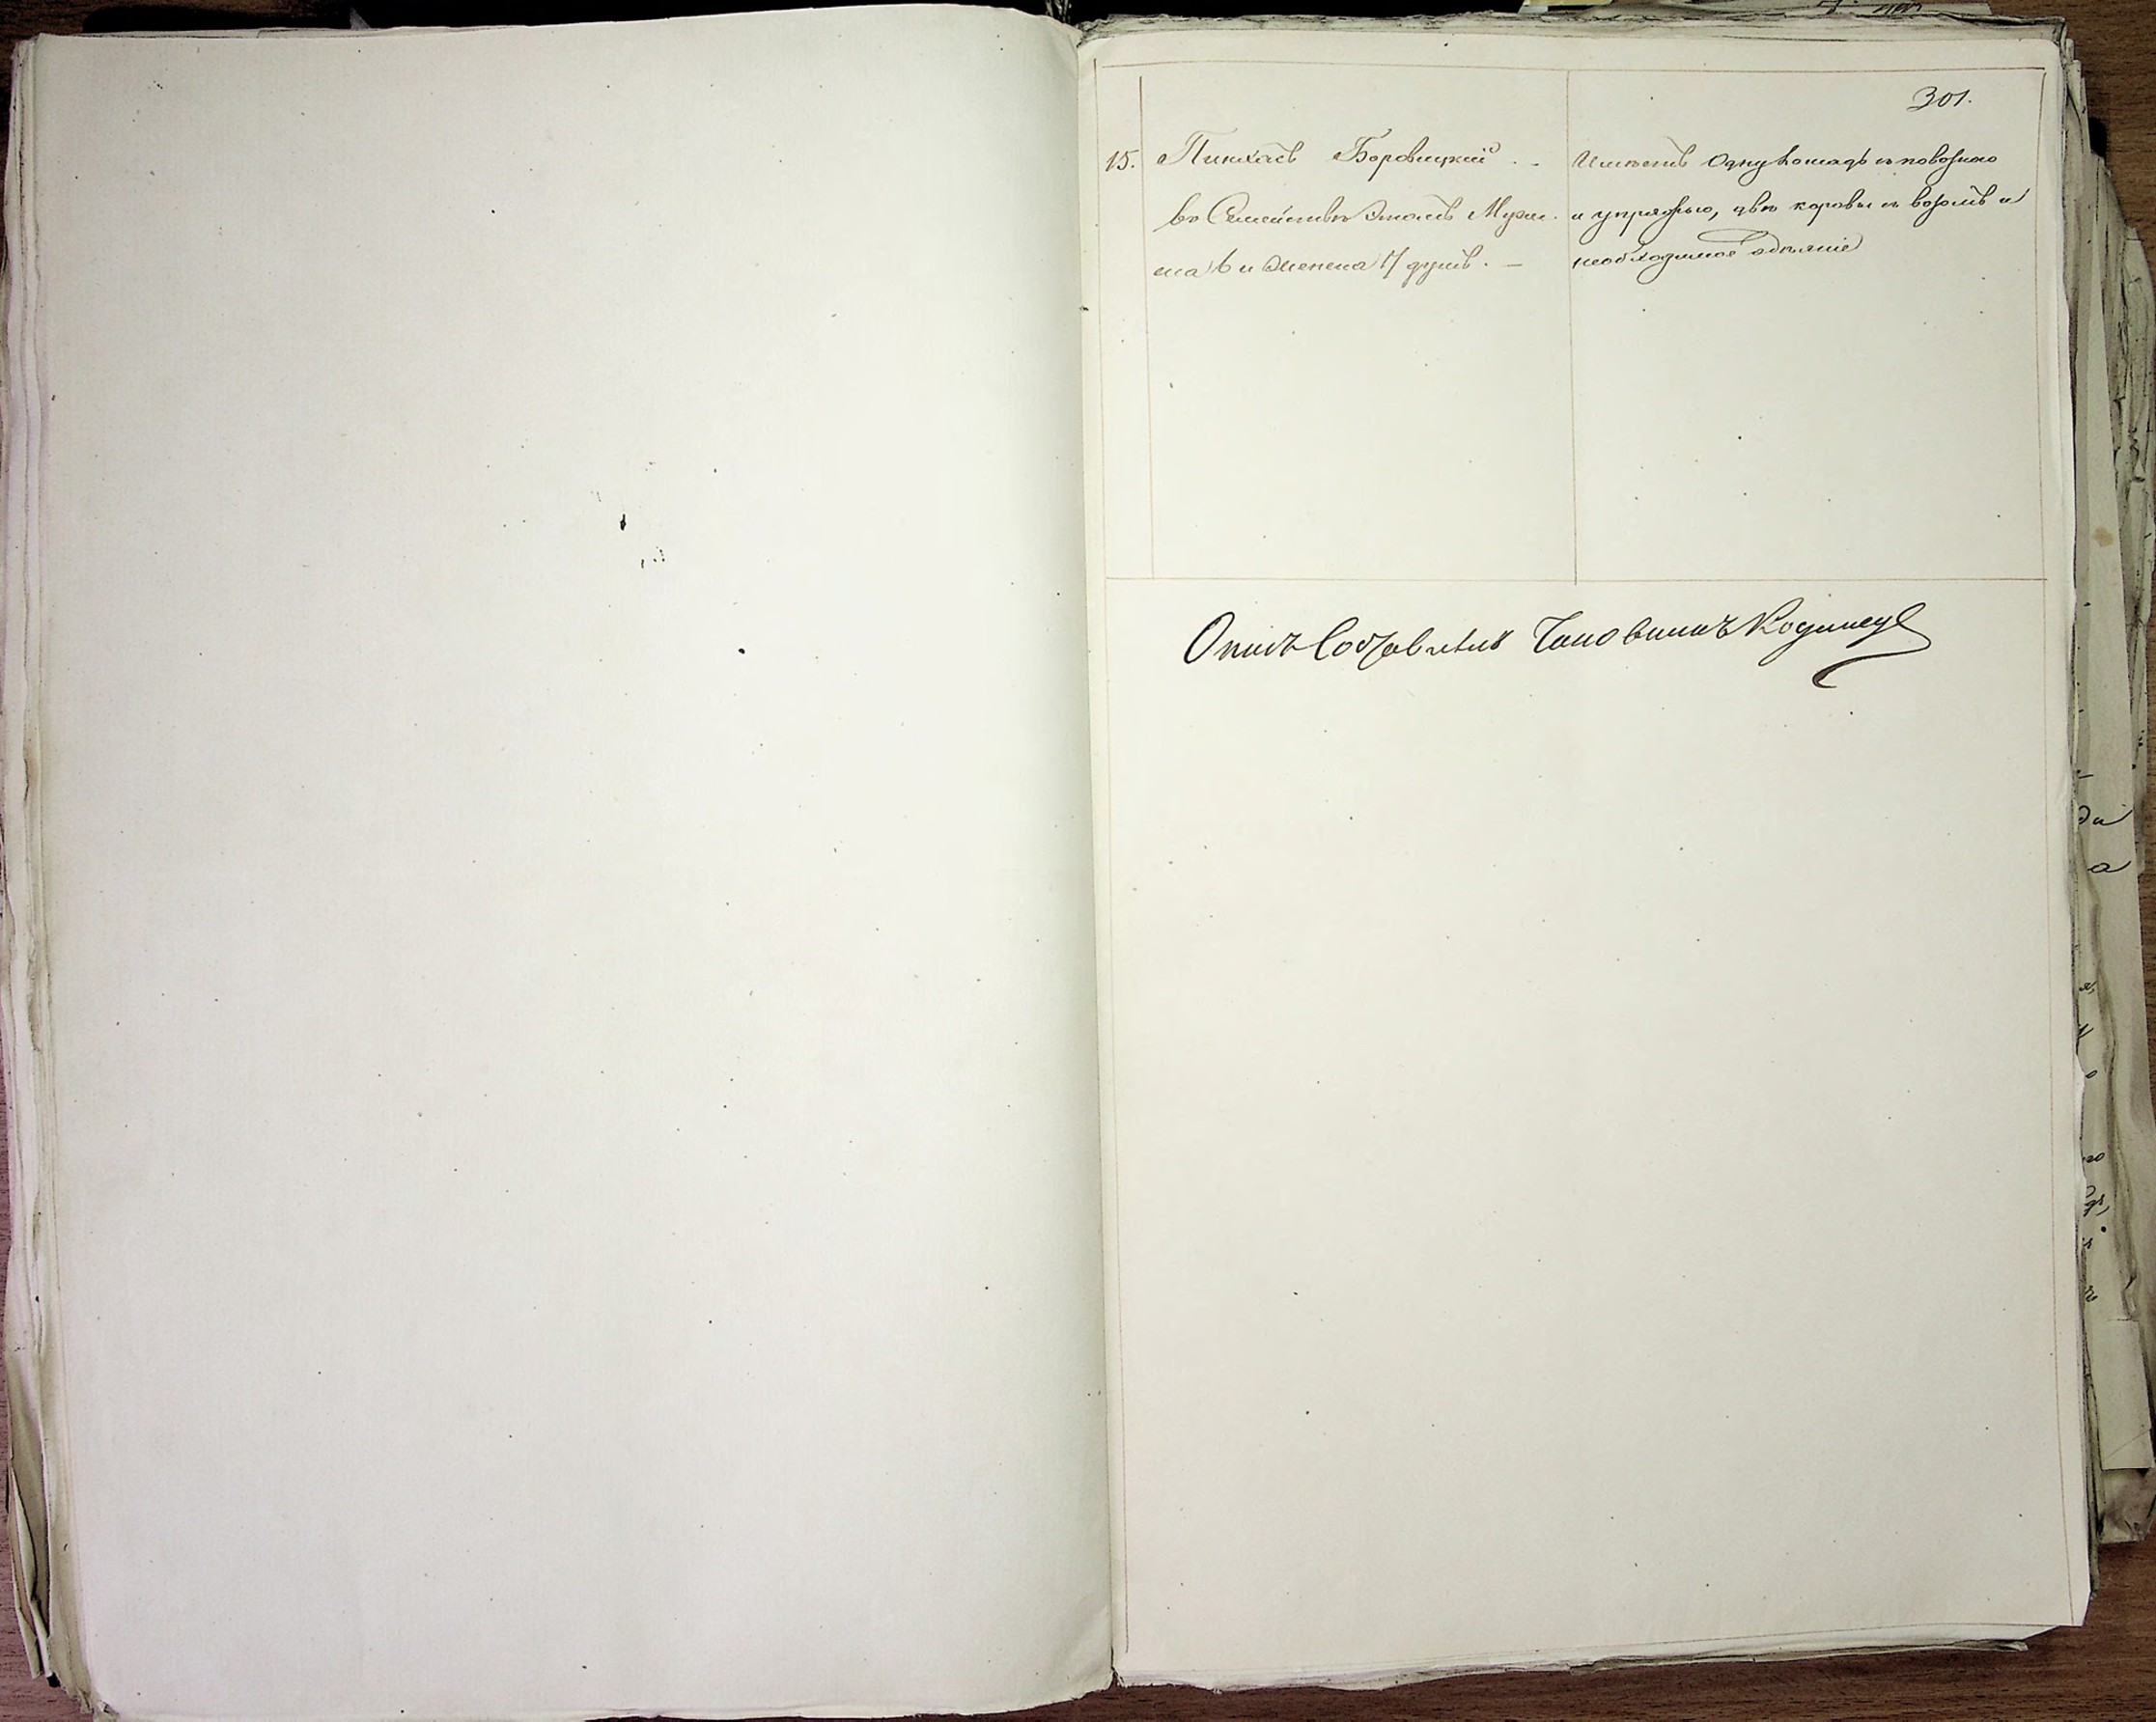 301.
15. Пинхасъ Боровицкій . -
въ Семействѣ Этомъ Муже-
ска 6 и Женска 4 душъ. —
Имѣетъ одну лошадь съ повозкою
и упряжью, двѣ коровы съ возомъ и
необходимое одѣяніе
Опись Составилъ Чиновникъ